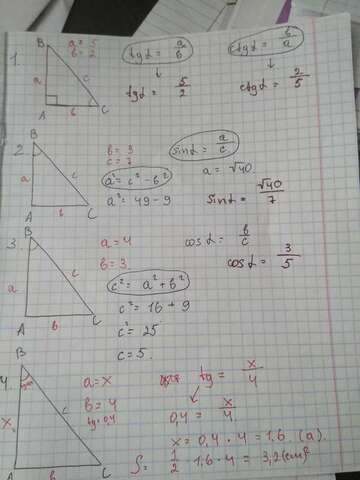 1.
B
a = 5
b = 2
a
c
A
b
C
tgα = a/b
↓
tgα = 5/2
ctgα = b/a
↓
ctgα = 2/5
2.
B
b = 3
c = 7
a
c
A
b
C
a² = c² - b²
a² = 49 - 9
sinα = a/c
a = √40.
sinα = √40/7
3.
B
a = 4
b = 3
a
c
A
b
C
c² = a² + b²
c² = 16 + 9
c² = 25
c = 5.
cosα = b/c
cosα = 3/5
4.
B
a = x
b = 4
tg = 0,4
x
c
A
b
C
tg = x/4
0,4 = x/4
x = 0,4 · 4 = 1.6 (a).
S = 1/2 · 1,6 · 4 = 3,2 (cm²